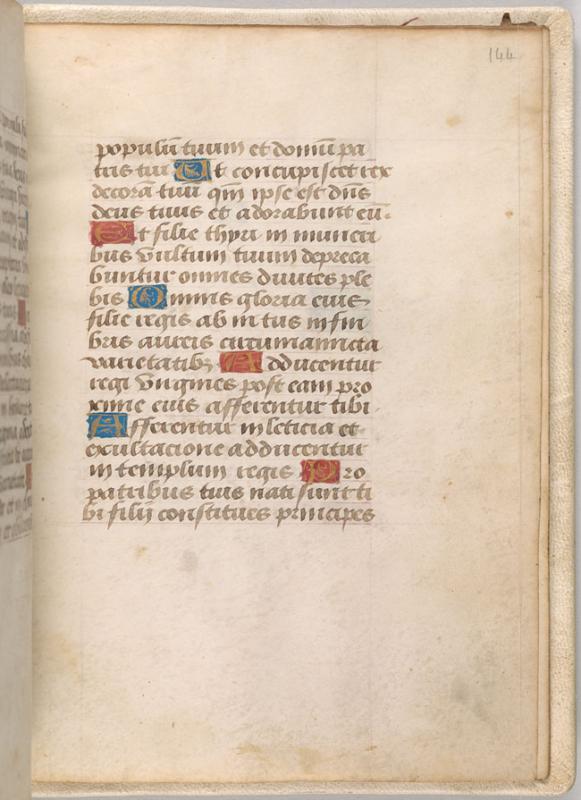 144
populū tuum et domū pa
tris tui Et concupiscet rex
decorā tuū qm̄ ipse est dn̄s
deus tuus et adorabunt eū.
Et filie thyri in muneri
bus vultum tuum depreca
buntur omnes diuites ple
bis Omnis gloria eius
filie regis ab in tus in fim
briis aureis circumamicta
varietatibꝫ Adducentur
regi virgines post eam pro
xime eius afferentur tibi
Afferentur in leticia et
exultacione adducentur
in templum regis Pro
patribus tuis nati sunt ti
bi filij constitues principes